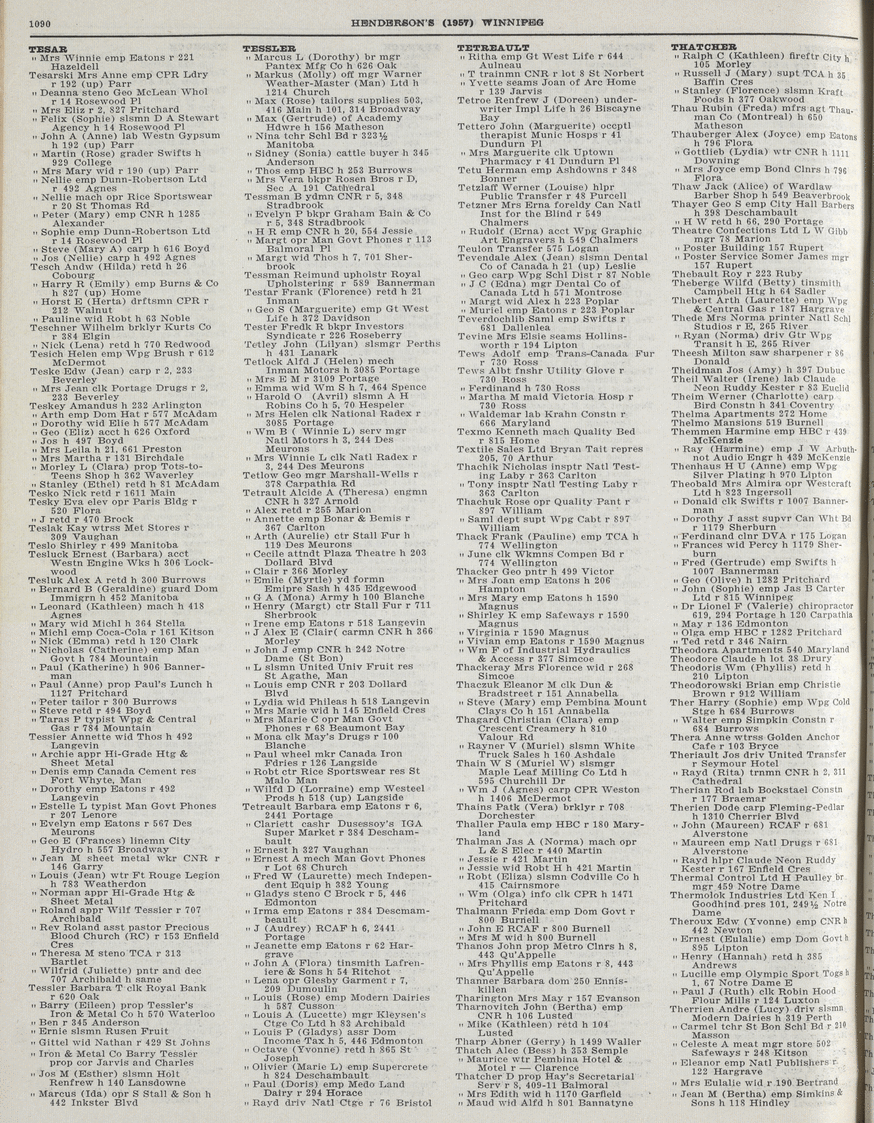 1090
HENDERSON'S (1957) WINNIPEG
TESAR
" Mrs Winnie emp Eatons r 221
Hazeldell
Tesarski Mrs Anne emp CPR Ldry
r 192 (up) Parr
" Deanna steno Geo McLean Whol
r 14 Rosewood Pl
" Mrs Eliz r 2, 827 Pritchard
" Felix (Sophie) slsmn D A Stewart
Agency h 14 Rosewood Pl
" John A (Anne) lab Westn Gypsum
h 192 (up) Parr
" Martin (Rose) grader Swifts h
929 College
" Mrs Mary wid r 190 (up) Parr
" Nellie emp Dunn-Robertson Ltd
r 492 Agnes
" Nellie mach opr Rice Sportswear
r 20 St Thomas Rd
" Peter (Mary) emp CNR h 1285
Alexander
" Sophie emp Dunn-Robertson Ltd
r 14 Rosewood Pl
" Steve (Mary A) carp h 616 Boyd
" Jos (Nellie) carp h 492 Agnes
Tesch Andw (Hilda) retd h 26
Cobourg
" Harry R (Emily) emp Burns & Co
h 827 (up) Home
" Horst E (Herta) drftsmn CPR r
212 Walnut
" Pauline wid Robt h 63 Noble
Teschner Wilhelm brklyr Kurts Co
r 384 Elgin
" Nick (Lena) retd h 770 Redwood
Tesich Helen emp Wpg Brush r 612
McDermot
Teske Edw (Jean) carp r 2, 233
Beverley
" Mrs Jean clk Portage Drugs r 2,
233 Beverley
Teskey Amandus h 232 Arlington
" Arth emp Dom Hat r 577 McAdam
" Dorothy wid Elie h 577 McAdam
" Geo (Eliz) acct h 626 Oxford
" Jos h 497 Boyd
" Mrs Leila h 21, 661 Preston
" Mrs Martha r 131 Birchdale
" Morley L (Clara) prop Tots-to-
Teens Shop h 362 Waverley
" Stanley (Ethel) retd h 81 McAdam
Tesko Nick retd r 1611 Main
Tesky Eva elev opr Paris Bldg r
520 Flora
" J retd r 470 Brock
Teslak Kay wtrss Met Stores r
309 Vaughan
Teslo Shirley r 499 Manitoba
Tesluck Ernest (Barbara) acct
Westn Engine Wks h 306 Lock-
wood
Tesluk Alex A retd h 300 Burrows
" Bernard B (Geraldine) guard Dom
Immigrn h 452 Manitoba
" Leonard (Kathleen) mach h 418
Agnes
" Mary wid Michl h 364 Stella
" Michl emp Coca-Cola r 161 Kitson
" Nick (Emma) retd h 120 Clark
" Nicholas (Catherine) emp Man
Govt h 784 Mountain
" Paul (Katherine) h 906 Banner-
man
" Paul (Anne) prop Paul's Lunch h
1127 Pritchard
" Peter tailor r 300 Burrows
" Steve retd r 494 Boyd
" Taras P typist Wpg & Central
Gas r 784 Mountain
Tessier Annette wid Thos h 492
Langevin
" Archie appr Hi-Grade Htg &
Sheet Metal
" Denis emp Canada Cement res
Fort Whyte, Man
" Dorothy emp Eatons r 492
Langevin
" Estelle L typist Man Govt Phones
r 207 Lenore
" Evelyn emp Eatons r 567 Des
Meurons
" Geo E (Frances) linemn City
Hydro h 557 Broadway
" Jean M sheet metal wkr CNR r
146 Garry
" Louis (Jean) wtr Ft Rouge Legion
h 783 Weatherdon
" Norman appr Hi-Grade Htg &
Sheet Metal
" Roland appr Wilf Tessier r 707
Archibald
" Rev Roland asst pastor Precious
Blood Church (RC) r 153 Enfield
Cres
" Theresa M steno TCA r 313
Bartlet
" Wilfrid (Juliette) pntr and dec
707 Archibald h same
Tessler Barbara T clk Royal Bank
r 620 Oak
" Barry (Eileen) prop Tessler's
Iron & Metal Co h 570 Waterloo
" Ben r 345 Anderson
" Ernie slsmn Rusen Fruit
" Gittel wid Nathan r 429 St Johns
" Iron & Metal Co Barry Tessler
prop cor Jarvis and Charles
" Jos M (Esther) slsmn Holt
Renfrew h 140 Lansdowne
" Marcus (Ida) opr S Stall & Son h
442 Inkster Blvd
TESSLER
" Marcus L (Dorothy) br mgr
Pantex Mfg Co h 626 Oak
" Markus (Molly) off mgr Warner
Weather-Master (Man) Ltd h
1214 Church
" Max (Rose) tailors supplies 503,
416 Main h 101, 314 Broadway
" Max (Gertrude) of Academy
Hdwre h 156 Matheson
" Nina tchr Schl Bd r 323½
Manitoba
" Sidney (Sonia) cattle buyer h 345
Anderson
" Thos emp HBC h 253 Burrows
" Mrs Vera bkpr Rosen Bros r D,
Sec A 191 Cathedral
Tessman B ydmn CNR r 5, 348
Stradbrook
" Evelyn P bkpr Graham Bain & Co
r 5, 348 Stradbrook
" H R emp CNR h 20, 554 Jessie
" Margt opr Man Govt Phones r 113
Balmoral Pl
" Margt wid Thos h 7, 701 Sher-
brook
Tessman Reimund upholstr Royal
Upholstering r 589 Bannerman
Testar Frank (Florence) retd h 21
Inman
" Geo S (Marguerite) emp Gt West
Life h 372 Davidson
Tester Fredk R bkpr Investors
Syndicate r 226 Roseberry
Tetley John (Lilyan) slsmgr Perths
h 431 Lanark
Tetlock Alfd J (Helen) mech
Inman Motors h 3085 Portage
" Mrs E M r 3109 Portage
" Emma wid Wm S h 7, 464 Spence
" Harold O (Avril) slsmn A H
Robins Co h 5, 70 Hespeler
" Mrs Helen clk National Radex r
3085 Portage
" Wm B ( Winnie L) serv mgr
Natl Motors h 3, 244 Des
Meurons
" Mrs Winnie L clk Natl Radex r
3, 244 Des Meurons
Tetlow Geo mgr Marshall-Wells r
378 Carpathia Rd
Tetrault Alcide A (Theresa) engmn
CNR h 327 Arnold
" Alex retd r 255 Marion
" Annette emp Bonar & Bemis r
367 Carlton
" Arth (Aurelie) ctr Stall Fur h
119 Des Meurons
" Cecile attndt Plaza Theatre h 203
Dollard Blvd
" Clair r 366 Morley
" Emile (Myrtle) yd formn
Emipre Sash h 435 Edgewood
" G A (Mona) Army h 100 Blanche
" Henry (Margt) ctr Stall Fur r 711
Sherbrook
" Irene emp Eatons r 518 Langevin
" J Alex E (Clair( carmn CNR h 366
Morley
" John J emp CNR h 242 Notre
Dame (St Bon)
" L slsmn United Univ Fruit res
St Agathe, Man
" Louis emp CNR r 203 Dollard
Blvd
" Lydia wid Phileas h 518 Langevin
" Mrs Marie wid h 145 Enfield Cres
" Mrs Marie C opr Man Govt
Phones r 68 Beaumont Bay
" Mona clk May's Drugs r 100
Blanche
" Paul wheel mkr Canada Iron
Fdries r 126 Langside
" Robt ctr Rice Sportswear res St
Malo Man
" Wilfd D (Lorraine) emp Westeel
Prods h 518 (up) Langside
Tetreault Barbara emp Eatons r 6,
2441 Portage
" Clariett cashr Dusessoy's IGA
Super Market r 384 Descham-
bault
" Ernest h 327 Vaughan
" Ernest A mech Man Govt Phones
r Lot 68 Church
" Fred W (Laurette) mech Indepen-
dent Equip h 382 Young
" Gladys steno C Brock r 5, 446
Edmonton
" Irma emp Eatons r 384 Descmam-
beault
" J (Audrey) RCAF h 6, 2441
Portage
" Jeanette emp Eatons r 62 Har-
grave
" John A (Flora) tinsmith Lafren-
iere & Sons h 54 Ritchot
" Lena opr Glesby Garment r 7,
209 Dumoulin
" Louis (Rose) emp Modern Dairies
h 587 Cusson
" Louis A (Lucette) mgr Kleysen's
Ctge Co Ltd h 83 Archibald
" Louis P (Gladys) assr Dom
Income Tax h 5, 446 Edmonton
" Octave (Yvonne) retd h 865 St
Joseph
" Olivier (Marie L) emp Supercrete
h 824 Deschambault
" Paul (Doris) emp Medo Land
Dairy r 294 Horace
" Rayd driv Natl Ctge r 76 Bristol
TETREAULT
" Ritha emp Gt West Life r 644
Aulneau
" T trainmn CNR r lot 8 St Norbert
" Yvette seams Joan of Arc Home
r 139 Jarvis
Tetroe Renfrew J (Doreen) under-
writer Impl Life h 26 Biscayne
Bay
Tettero John (Marguerite) occptl
therapist Munic Hosps r 41
Dundurn Pl
" Mrs Marguerite clk Uptown
Pharmacy r 41 Dundurn Pl
Tetu Herman emp Ashdowns r 348
Bonner
Tetzlaff Werner (Louise) hlpr
Public Transfer r 48 Purcell
Tetzner Mrs Erna foreldy Can Natl
Inst for the Blind r 549
Chalmers
" Rudolf (Erna) acct Wpg Graphic
Art Engravers h 549 Chalmers
Teulon Transfer 575 Logan
Tevendale Alex (Jean) slsmn Dental
Co of Canada h 21 (up) Leslie
" Geo carp Wpg Schl Dist r 87 Noble
" J C (Edna) mgr Dental Co of
Canada Ltd h 571 Montrose
" Margt wid Alex h 223 Poplar
" Muriel emp Eatons r 223 Poplar
Teverdochlib Saml emp Swifts r
681 Dallenlea
Tevine Mrs Elsie seams Hollins-
worth r 194 Lipton
Tews Adolf emp Trans-Canada Fur
r 730 Ross
Tews Albt fnshr Utility Glove r
730 Ross
" Ferdinand h 730 Ross
" Martha M maid Victoria Hosp r
730 Ross
" Waldemar lab Krahn Constn r
666 Maryland
Texmo Kenneth mach Quality Bed
r 815 Home
Textile Sales Ltd Bryan Tait repres
205, 70 Arthur
Thachik Nicholas insptr Natl Test-
ing Labty r 363 Carlton
" Tony insptr Natl Testing Labty r
363 Carlton
Thachuk Rose opr Quality Pant r
897 William
" Saml dept supt Wpg Cabt r 897
William
Thack Frank (Pauline) emp TCA h
774 Wellington
" June clk Wkmns Compen Bd r
774 Wellington
Thacker Geo pntr h 499 Victor
" Mrs Joan emp Eatons h 206
Hampton
" Mrs Mary emp Eatons h 1590
Magnus
" Shirley K emp Safeways r 1590
Magnus
" Virginia r 1590 Magnus
" Vivian emp Eatons r 1590 Magnus
" Wm F of Industrial Hydraulics
& Access r 377 Simcoe
Thackeray Mrs Florence wid r 268
Simcoe
Thaczuk Eleanor M clk Dun &
Bradstreet r 151 Annabella
" Steve (Mary) emp Pembina Mount
Clays Co h 151 Annabella
Thagard Christian (Clara) emp
Crescent Creamery h 810
Valour Rd
" Rayner V (Muriel) slsmn White
Truck Sales h 160 Ashdale
Thain W S (Muriel W) slsmgr
Maple Leaf Milling Co Ltd h
595 Churchill Dr
" Wm J (Agnes) carp CPR Weston
h 1406 McDermot
Thains Patk (Vera) brklyr r 708
Dorchester
Thaller Paula emp HBC r 180 Mary-
land
Thalman Jas A (Norma) mach opr
L & S Elec r 440 Martin
" Jessie r 421 Martin
" Jessie wid Robt H h 421 Martin
" Robt (Eliza) slsmn Codville Co h
415 Cairnsmore
" Wm (Olga) info clk CPR h 1471
Pritchard
Thalmann Frieda emp Dom Govt r
800 Burnell
" John E RCAF r 800 Burnell
" Mrs M wid h 800 Burnell
Thanos John prop Metro Clnrs h 8,
443 Qu'Appelle
" Mrs Phyllis emp Eatons r 8, 443
Qu'Appelle
Thanner Barbara dom 250 Ennis-
killen
Tharington Mrs May r 157 Evanson
Tharnovitch John (Bertha) emp
CNR h 106 Lusted
" Mike (Kathleen) retd h 104
Lusted
Tharp Abner (Gerry) h 1499 Waller
Thatch Alec (Bess) h 353 Semple
" Maurice wtr Pembina Hotel &
Motel r — Clarence
Thatcher D prop Hay's Secretarial
Serv r 8, 409-11 Balmoral
" Mrs Edith wid h 1170 Garfield
" Maud wid Alfd h 801 Bannatyne
THATCHER
" Ralph C (Kathleen) fireftr City h
105 Morley
" Russell J (Mary) supt TCA h 35
Baffin Cres
" Stanley (Florence) slsmn Kraft
Foods h 377 Oakwood
Thau Rubin (Freda) mfrs agt Thau-
man Co (Montreal) h 650
Matheson
Thauberger Alex (Joyce) emp Eatons
h 796 Flora
" Gottlieb (Lydia) wtr CNR h 1111
Downing
" Mrs Joyce emp Bond Clnrs h 796
Flora
Thaw Jack (Alice) of Wardlaw
Barber Shop h 549 Beaverbrook
Thayer Geo S emp City Hall Barbers
h 398 Deschambault
" H W retd h 66, 290 Portage
Theatre Confections Ltd L W Gibb
mgr 78 Marion
" Poster Building 157 Rupert
" Poster Service Somer James mgr
157 Rupert
Thebault Roy r 223 Ruby
Theberge Wilfd (Betty) tinsmith
Campbell Htg h 64 Sadler
Thebert Arth (Laurette) emp Wpg
& Central Gas r 187 Hargrave
Thede Mrs Norma printer Natl Schl
Studios r E, 265 River
" Ryan (Norma) driv Gtr Wpg
Transit h E, 265 River
Theesh Milton saw sharpener r 86
Donald
Theidman Jos (Amy) h 397 Dubuc
Theil Walter (Irene) lab Claude
Neon Ruddy Kester r 83 Euclid
Theim Werner (Charlotte) carp
Bird Constn h 341 Coventry
Thelma Apartments 272 Home
Thelmo Mansions 519 Burnell
Themmen Harmine emp HBC r 439
McKenzie
" Ray (Harmine) emp J W Arbuth-
not Audio Engr h 439 McKenzie
Thenhaus H U (Anne) emp Wpg
Silver Plating h 970 Lipton
Theobald Mrs Almira opr Westcraft
Ltd h 823 Ingersoll
" Donald clk Swifts r 1007 Banner-
man
" Dorothy J asst supvr Can Wht Bd
r 1179 Sherburn
" Ferdinand clnr DVA r 175 Logan
" Frances wid Percy h 1179 Sher-
burn
" Fred (Gertrude) emp Swifts h
1007 Bannerman
" Geo (Olive) h 1282 Pritchard
" John (Sophie) emp Jas B Carter
Ltd r 815 Winnipeg
" Dr Lionel F (Valerie) chiropractor
619, 294 Portage h 120 Carpathia
" May r 136 Edmonton
" Olga emp HBC r 1282 Pritchard
" Ted retd r 346 Nairn
Theodora Apartments 540 Maryland
Theodore Claude h lot 38 Drury
Theodoris Wm (Phyllis) retd h
210 Lipton
Theodorowski Brian emp Christie
Brown r 912 William
Ther Harry (Sophie) emp Wpg Cold
Stge h 684 Burrows
" Walter emp Simpkin Constn r
684 Burrows
Thera Anne wtrss Golden Anchor
Cafe r 103 Bryce
Theriault Jos driv United Transfer
r Seymour Hotel
" Rayd (Rita) trnmn CNR h 2, 311
Cathedral
Therian Rod lab Bockstael Constn
r 177 Braemar
Therien Dode carp Fleming-Pedlar
h 1310 Cherrier Blvd
" John (Maureen) RCAF r 681
Alverstone
" Maureen emp Natl Drugs r 681
Alverstone
" Rayd hlpr Claude Neon Ruddy
Kester r 167 Enfield Cres
Thermal Control Ltd H Paulley br
mgr 459 Notre Dame
Thermolok Industries Ltd Ken I
Goodhind pres 101, 249½ Notre
Dame
Theroux Edw (Yvonne) emp CNR h
442 Newton
" Ernest (Eulalie) emp Dom Govt h
895 Lipton
" Henry (Hannah) retd h 385
Andrews
" Lucille emp Olympic Sport Togs h
1, 67 Notre Dame E
" Paul J (Ruth) clk Robin Hood
Flour Mills r 124 Luxton
Therrien Andre (Lucy) driv slsmn
Modern Dairies h 319 Perth
" Carmel tchr St Bon Schl Bd r 210
Masson
" Celeste A meat mgr store 502
Safeways r 248 Kitson
" Eleanor emp Natl Publishers r
122 Hargrave
" Mrs Eulalie wid r 190 Bertrand
" Jean M (Bertha) emp Simkins &
Sons h 118 Hindley